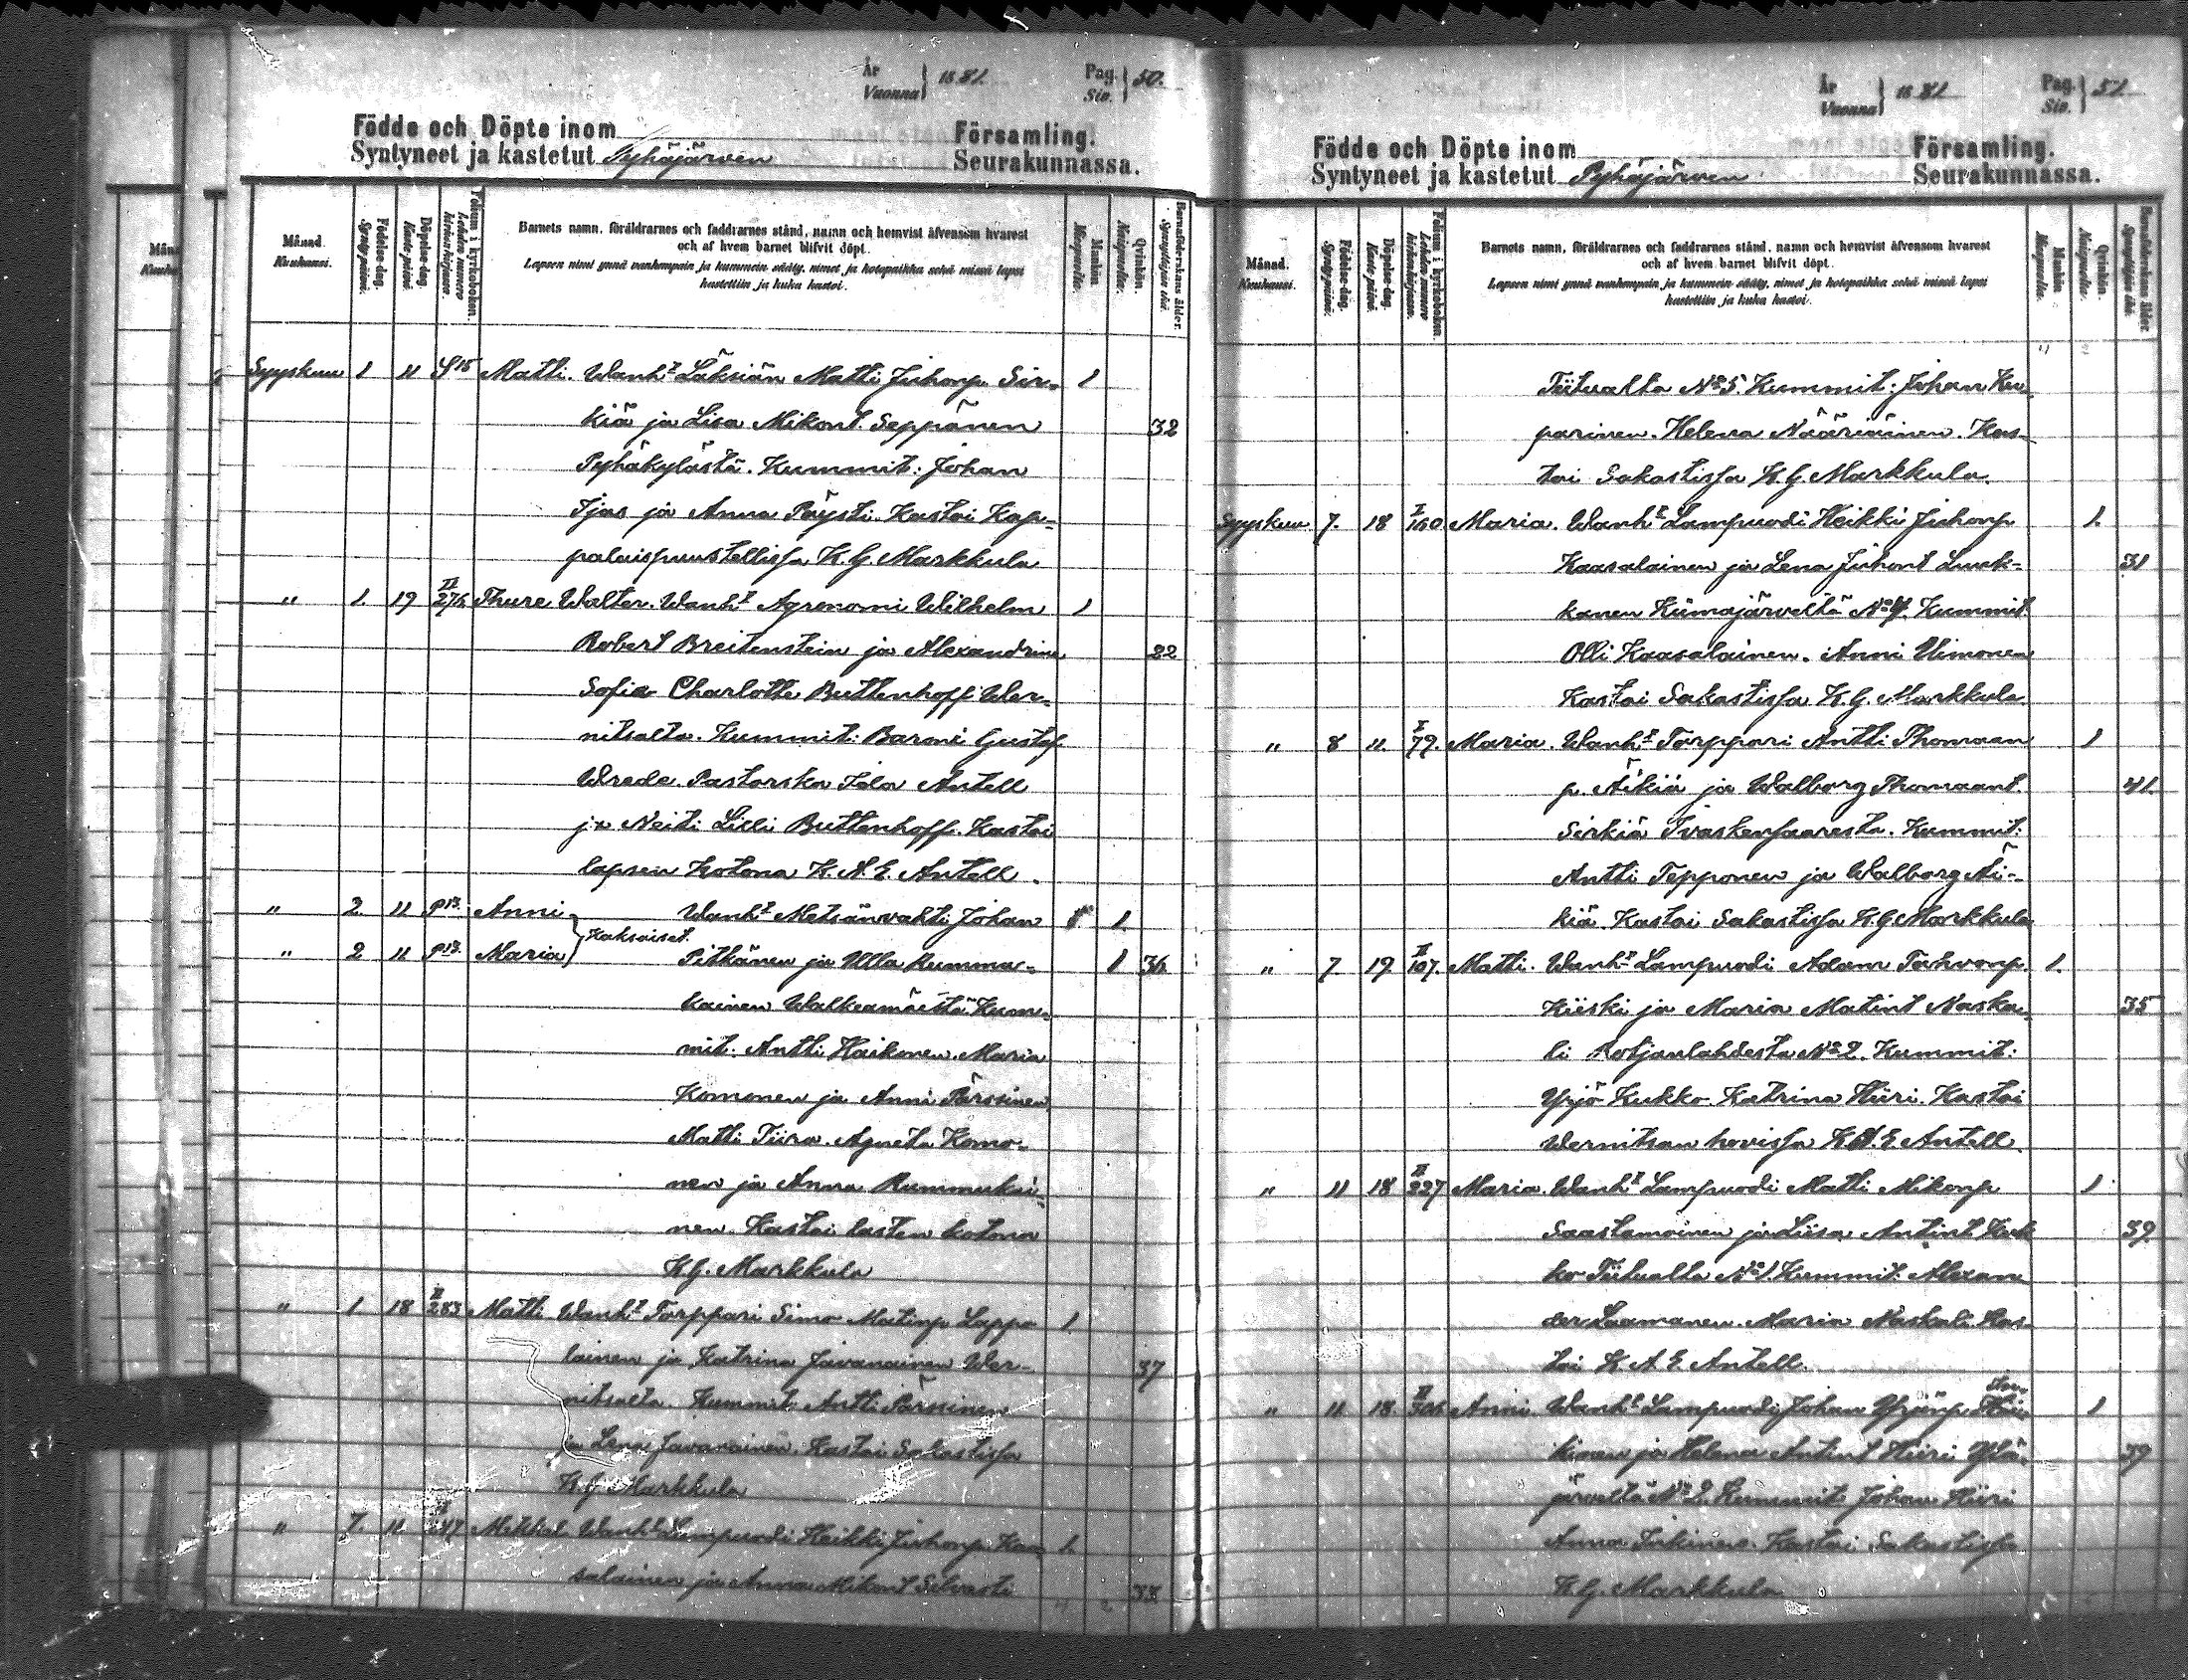 År
Vuonna } 1881.
Pag.
Siv. } 50.
Födde och Döpte inom Församling.
Syntyneet ja kastetut Pyhäjärven Seurakunnassa.
Månad.
Kuukausi.
Födelse-dag.
Syntymäpäivä.
Döpelse-dag.
Kaste päivä.
Folium i kyrkoboken.
Lehden numero kirkonkirjassa.
Barnets namn, föräldrarnes och faddrarnes stånd, namn och hemvist äfvensom hvarest
och af hvem barnet blifvit döpt.
Lapsen nimi ynnä vanhempain ja kummein sääty, nimet ja kotopaikka sekä missä lapsi
kastettiin ja kuka kastoi.
Mankön.
Miespuolia.
Qvinkön.
Naispuolia.
Barnaföderskans ålder.
Synnyttäjän ikä.
Syyskuu 1 11 S15 Matti. Wanht Läksiän Matti Juhonp. Sir- 1
kiä ja Lisa Mikont. Seppänen 32
Pyhäkylästä. Kummit: Johan
Ijas ja Anna Päysti. Kastoi Kap-
palaispuustellissa K. G. Markkula
" 1. 19 II 276 Thure Walter. Wanht Agronomi Wilhelm 1
Robert Breitenstein ja Alexandrine 22
Sofia Charlotte Buttenhoff Wer-
nitsalta. Kummit: Baroni Gustaf
Wrede. Pastorska Ida Antell
ja Neiti Lilli Buttenhoff. Kastoi
lapsen kotona K. A. E. Antell.
" 2. 11 P13. Anni } Wanht Metsänvahti Johan 1.
Kaksoiset.
" 2 11 P13. Maria } Pitkänen ja Ulla Rummu- 1 36
kainen Walkeamäestä Kum-
mit: Antti Haikonen. Maria
Komonen ja Anni Pärssinen
Matti Tiira. Agneta Komo-
nen ja Anna Rummukai-
nen. Kastoi lasten kotona
K. G. Markkula
" 1. 18 II 283 Matti Wanht Torppari Simo Matinp Lappa 1.
lainen ja Katrina Javanainen Wer- 37
nitsalta. Kummit Antti Pärssinen
ja Lena Javanainen. Kastoi Sakastissa
K. G. Markkula
" 7. 11 II 247 Mikkel Wanht Lampuodi Heikki Juhonp. Kaa- 1.
salainen ja Anna Mikont Silvasti 38
År
Vuonna } 1881
Pag.
Siv. } 51
Födde och Döpte inom Församling.
Syntyneet ja kastetut Pyhäjärven Seurakunnassa.
Månad.
Kuukausi.
Födelse-dag.
Syntymäpäivä.
Döpelse-dag.
Kaste päivä.
Folium i kyrkoboken.
Lehden numero kirkonkirjassa.
Barnets namn, föräldrarnes och faddrarnes stånd, namn och hemvist äfvensom hvarest
och af hvem barnet blifvit döpt.
Lapsen nimi ynnä vanhempain ja kummein sääty, nimet ja kotopaikka sekä missä lapsi
kastettiin ja kuka kastoi.
Mankön.
Miespuolia.
Qvinkön.
Naispuolia.
Barnaföderskans ålder.
Synnyttäjän ikä.
Tiitualta No 5. Kummit: Johan Ku-
parinen. Helena Nääriäinen. Kas-
toi Sakastissa K. G. Markkula.
Syyskuu 7. 18 I 160. Maria. Wanht Lampuodi Heikki Juhonp 1.
Kaasalainen ja Lena Juhont Luuk- 31
kanen Kiimajärveltä No 4. Kummit.
Olli Kaasalainen. Anni Uimonen
Kastoi Sakastissa K. G. Markkula.
" 8 11 I 79. Maria. Wanht Torppari Antti Thomaan 1
p. Äikiä ja Walborg Thomaant. 41.
Sirkiä Ivaskensaaresta. Kummit:
Antti Tepponen ja Walborg Äi-
kiä. Kastoi Sakastissa K. G. Markkula
" 7 19. II 107. Matti. Wanht Lampuodi Adam Tahvonp. 1.
Kiiski ja Maria Matint Naska- 35
li Rotjanlahdesta No 2. Kummit:
Yrjö Kukko. Katrina Hiiri. Kastoi
Wernitsan hovissa K. A. E. Antell.
" 11 18 II 227 Maria. Wanht Lampuodi Matti Mikonp 1
Saastamoinen ja Liisa Antint Kuk 39
ko Tiitualta No 1. Kummit: Alexan
der Laamanen. Maria Naskali. Kas
toi K A E Antell.
" 11 18. II 306 Anni. Wanht Lampuodi Johan Yrjönp 1
ja Helena Antint Hiiri Ylä- 39
järveltä No 2. Kummit Johan Hiiri
Anna Inkinen. Kastoi Sakastissa
K. G. Markkula